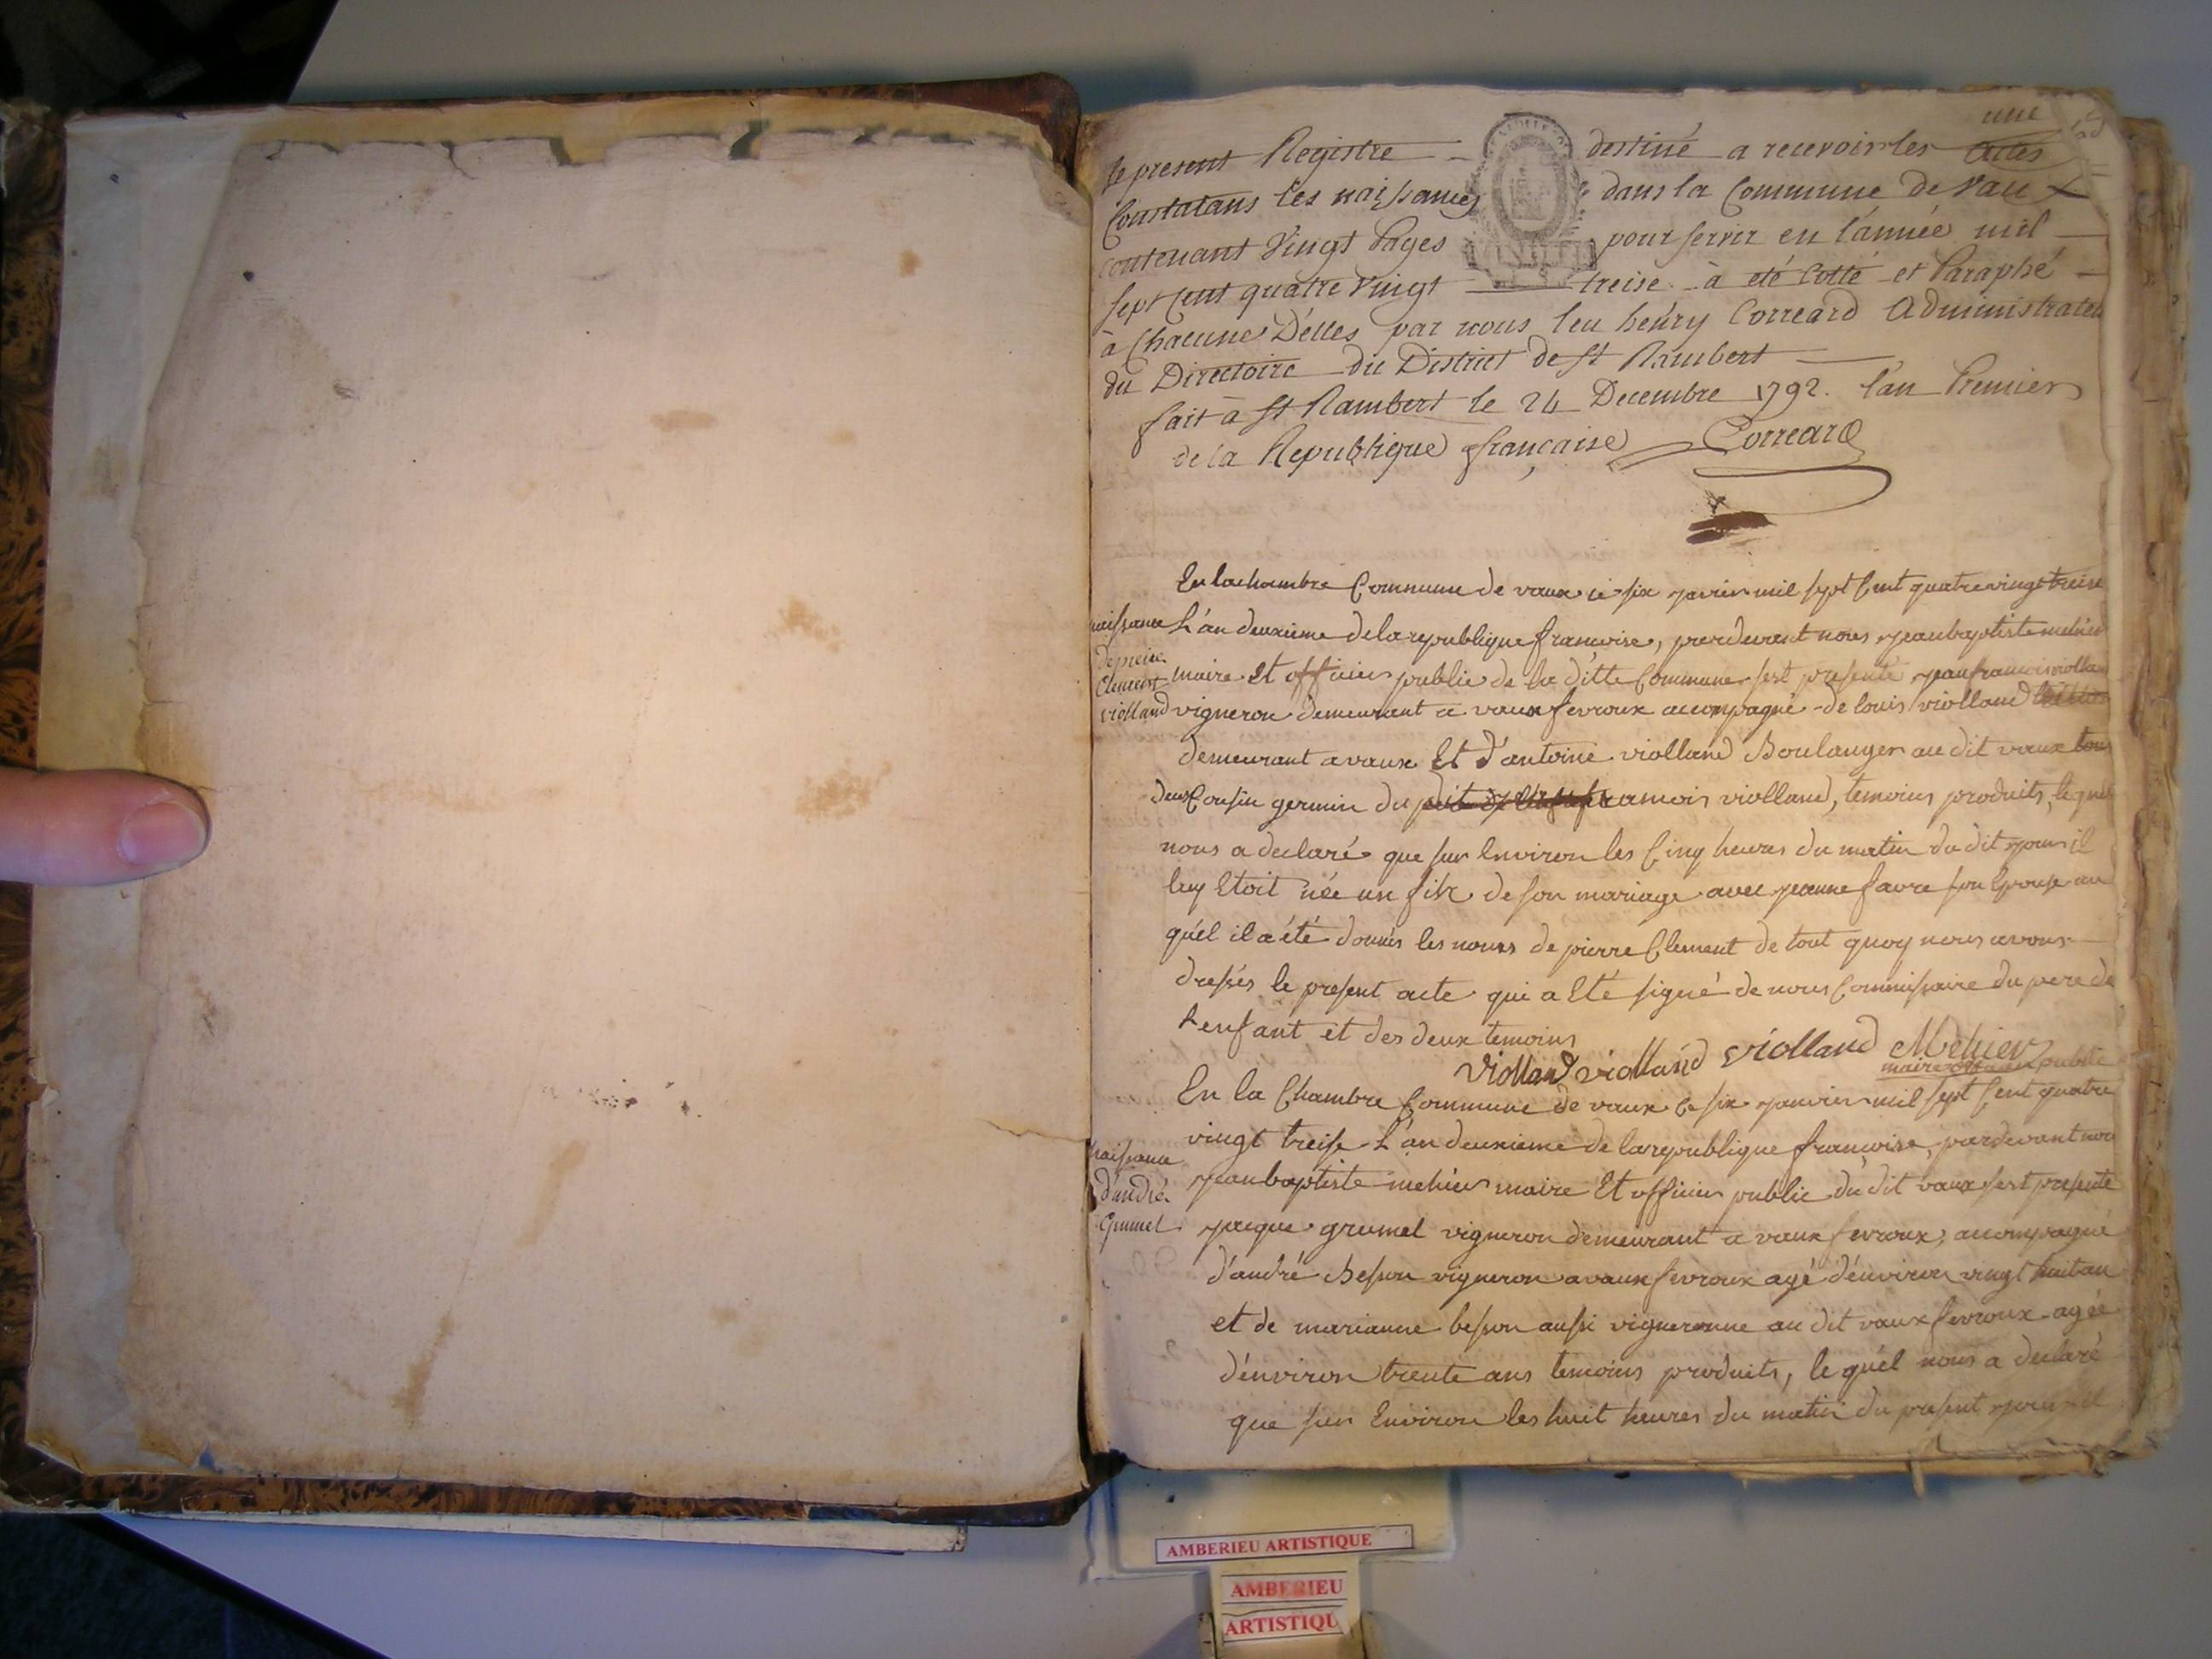 une
le present Registre destiné a recevoir les actes
Constatans les naissances dans la Commune de Vaux
contenant Vingt Pages pour servir en l'année mil
sept cent quatre Vingt treise à eté Cotté et Paraphé
à Chacune D'elles par nous leu henry Correard Administrateu
du Directoire du District de St Rambert
fait à St Rambert le 24 Decembre 1792. l'an Premier
de la Republique française Correard
En la chambre Commune de vaux ce six janvier mil sept Cent quatre vingt treise
naissance
de pierre
Clement
violland
L'an deuxieme de la republique françoise, pardevant nous jean baptiste mehier
maire Et officier public de la ditte Commune s'est presenté jean francois viollan
vigneron demeurant a vaux fevroux accompagné de louis violland
demeurant a vaux Et d'antoine violland Boulanger au dit vaux tous
deux Cousin germin du francois violland, temoins produits, lequel
nous a declaré que sur Environ les Cinq heures du matin du dit jour il
luy Etoit née un fils de son mariage avec jeanne favre son Epouse au
quél il a été donnés les noms de pierre Clement de tout quoy nous avons
dressés le present acte qui a Eté signé de nous Commissaire du pere de
L'enfant et des deux temoins
Violland violland violland Mehier
maire officier public
En la Chambre Commune de vaux ce six janvier mil sept Cent quatre
vingt treise L'an deuxieme de la republique françoise, pardevant nou
naissance
d'andré
Grumel
jean baptiste mehier maire Et officier public du dit vaux s'est presenté
jacque grumel vigneron demeurant a vaux fevroux, accompagné
d'andré Besson vigneron a vaux fevroux agé d'énviron vingt huit an
et de marianne besson aussi vigneronne au dit vaux fevroux agée
d'énviron trente ans temoins produits, le quél nous a declaré
que sur Environ les huit heures du matin du present jour il
AMBERIEU ARTISTIQUE
AMBERIEU
ARTISTIQU